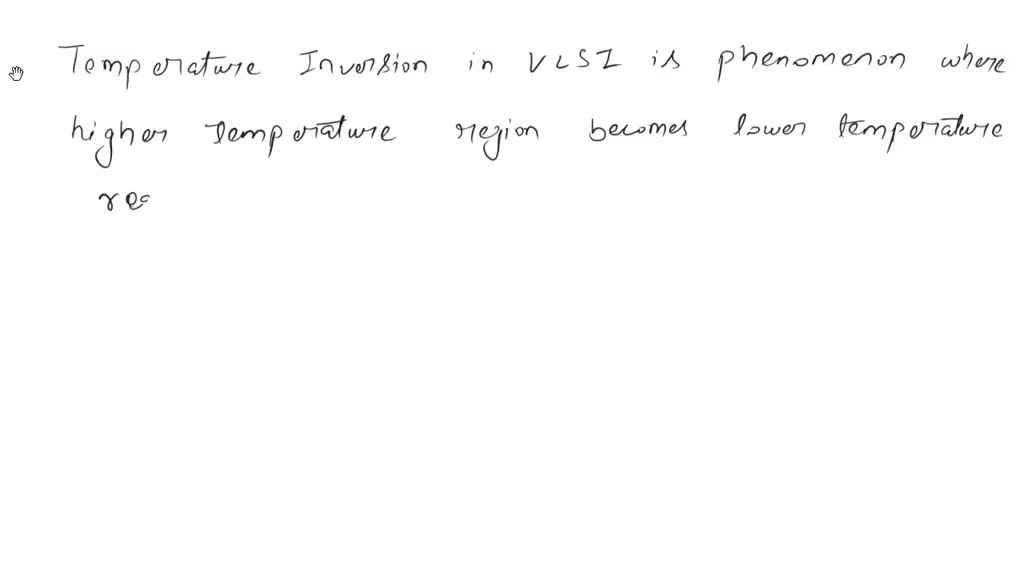 Temperature Inversion in VLSI is phenomenon where
higher temperature region becomes lower temperature
re